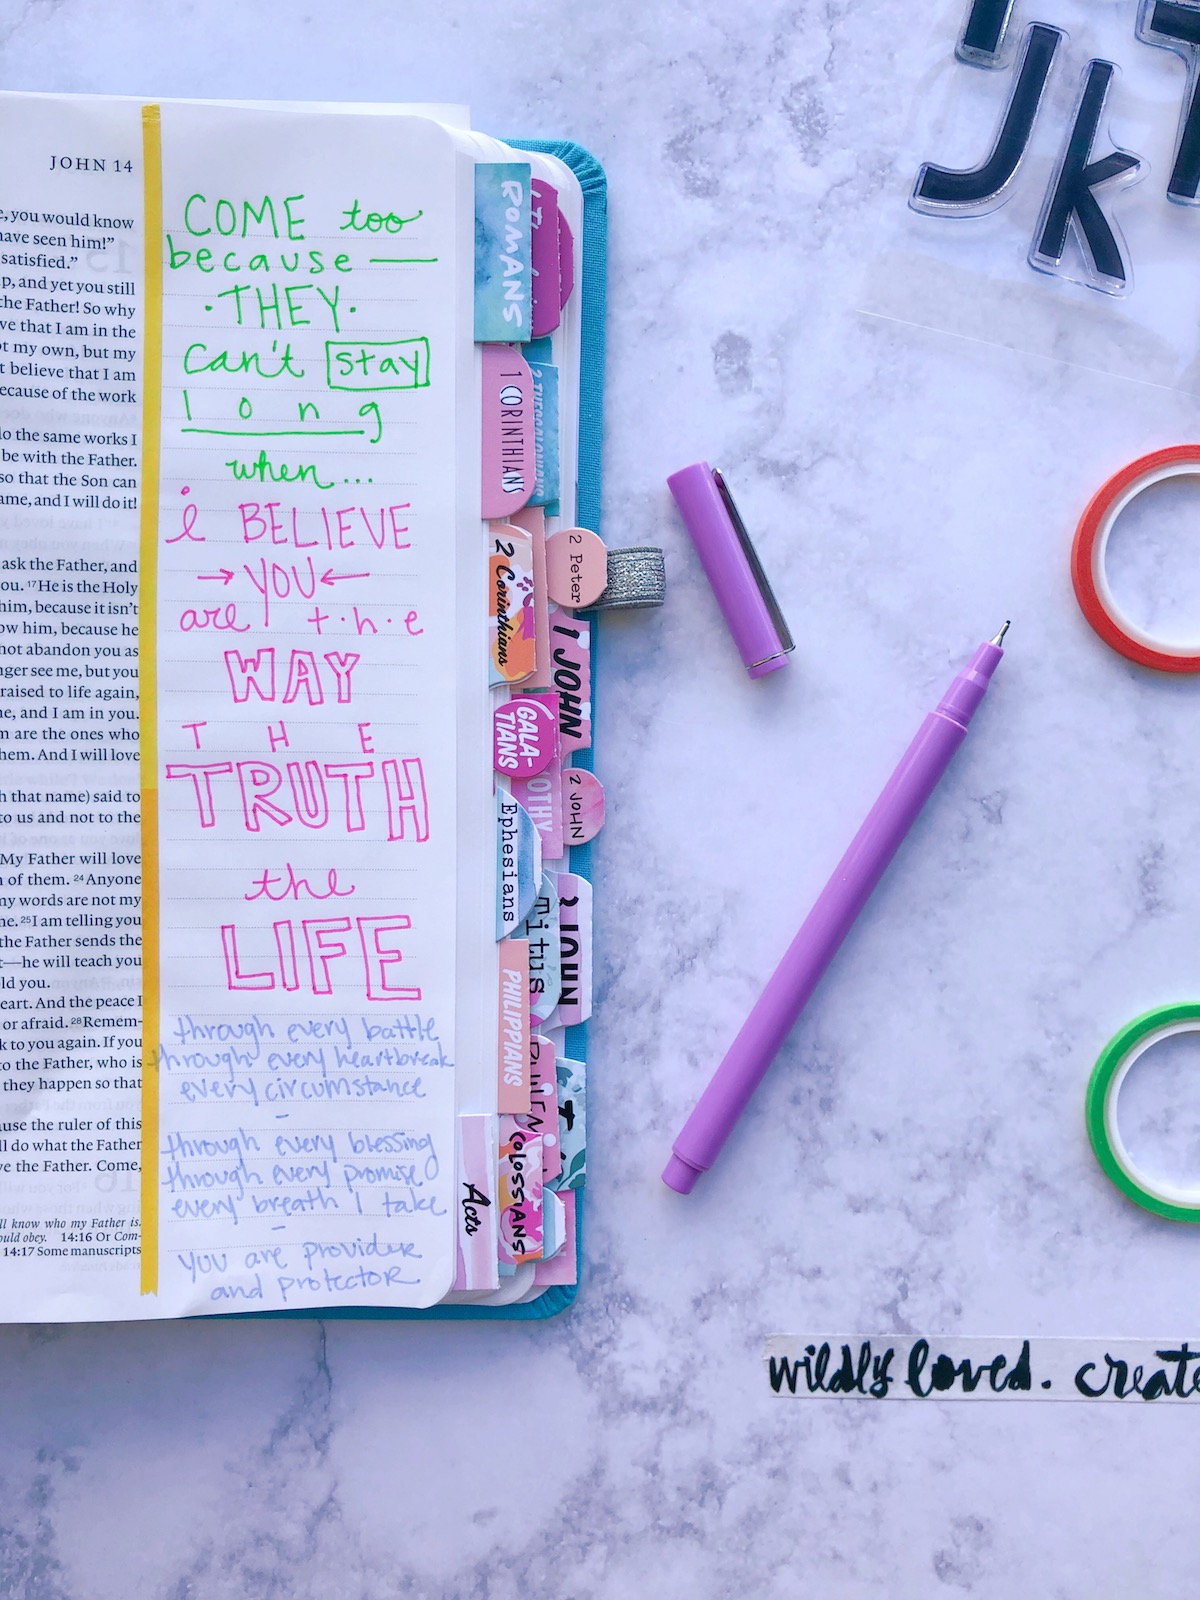 JOHN 14
e, you would know
have seen him!”
satisfied.”
p, and yet you still
the Father! So why
ve that I am in the
ot my own, but my
t believe that I am
ecause of the work
do the same works I
be with the Father.
so that the Son can
ame, and I will do it!
ask the Father, and
ou. 17 He is the Holy
him, because it isn’t
ow him, because he
not abandon you as
nger see me, but you
raised to life again,
ne, and I am in you.
m are the ones who
hem. And I will love
h that name) said to
to us and not to the
My Father will love
n of them. 24 Anyone
my words are not my
ne. 25 I am telling you
the Father sends the
t—he will teach you
old you.
eart. And the peace I
or afraid. 28 Remem-
k to you again. If you
to the Father, who is
they happen so that
ause the ruler of this
ll do what the Father
ve the Father. Come,
ll know who my Father is.
ould obey. 14:16 Or Com-
14:17 Some manuscripts
COME too
because —
· THEY ·
can't stay
long
when...
i BELIEVE
→ YOU ←
are t·h·e
WAY
THE
TRUTH
the
LIFE
through every battle
through every heartbreak
every circumstance
–
through every blessing
through every promise
every breath I take
–
you are provider
and protector
ROMANS
1 CORINTHIANS
2 THESSALONIANS
2 Corinthians
2 Peter
1 JOHN
GALA-
TIANS
OTHY
2 JOHN
Ephesians
Titus
JOHN
PHILIPPIANS
COLOSSIANS
Acts
J
K
T
wildly loved. create